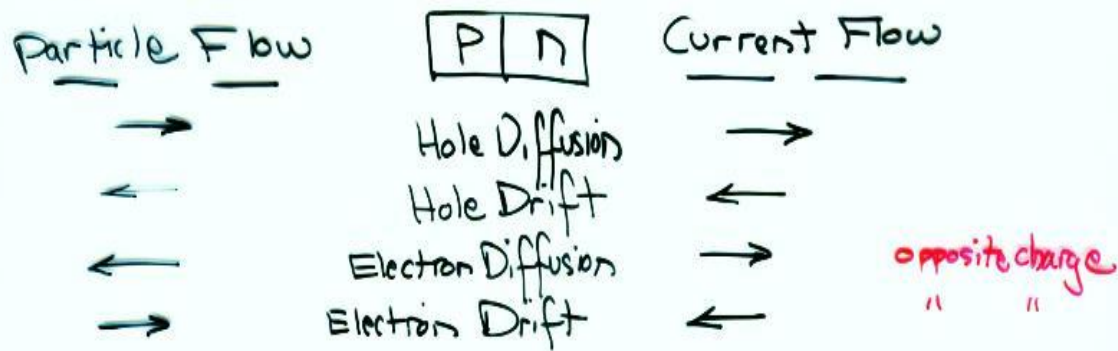 Particle Flow P n Current Flow
→ Hole Diffusion →
← Hole Drift ←
← Electron Diffusion → opposite charge
→ Electron Drift ← " "